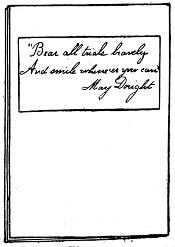 "Bear all trials bravely
And smile whenever you can"
May Doright